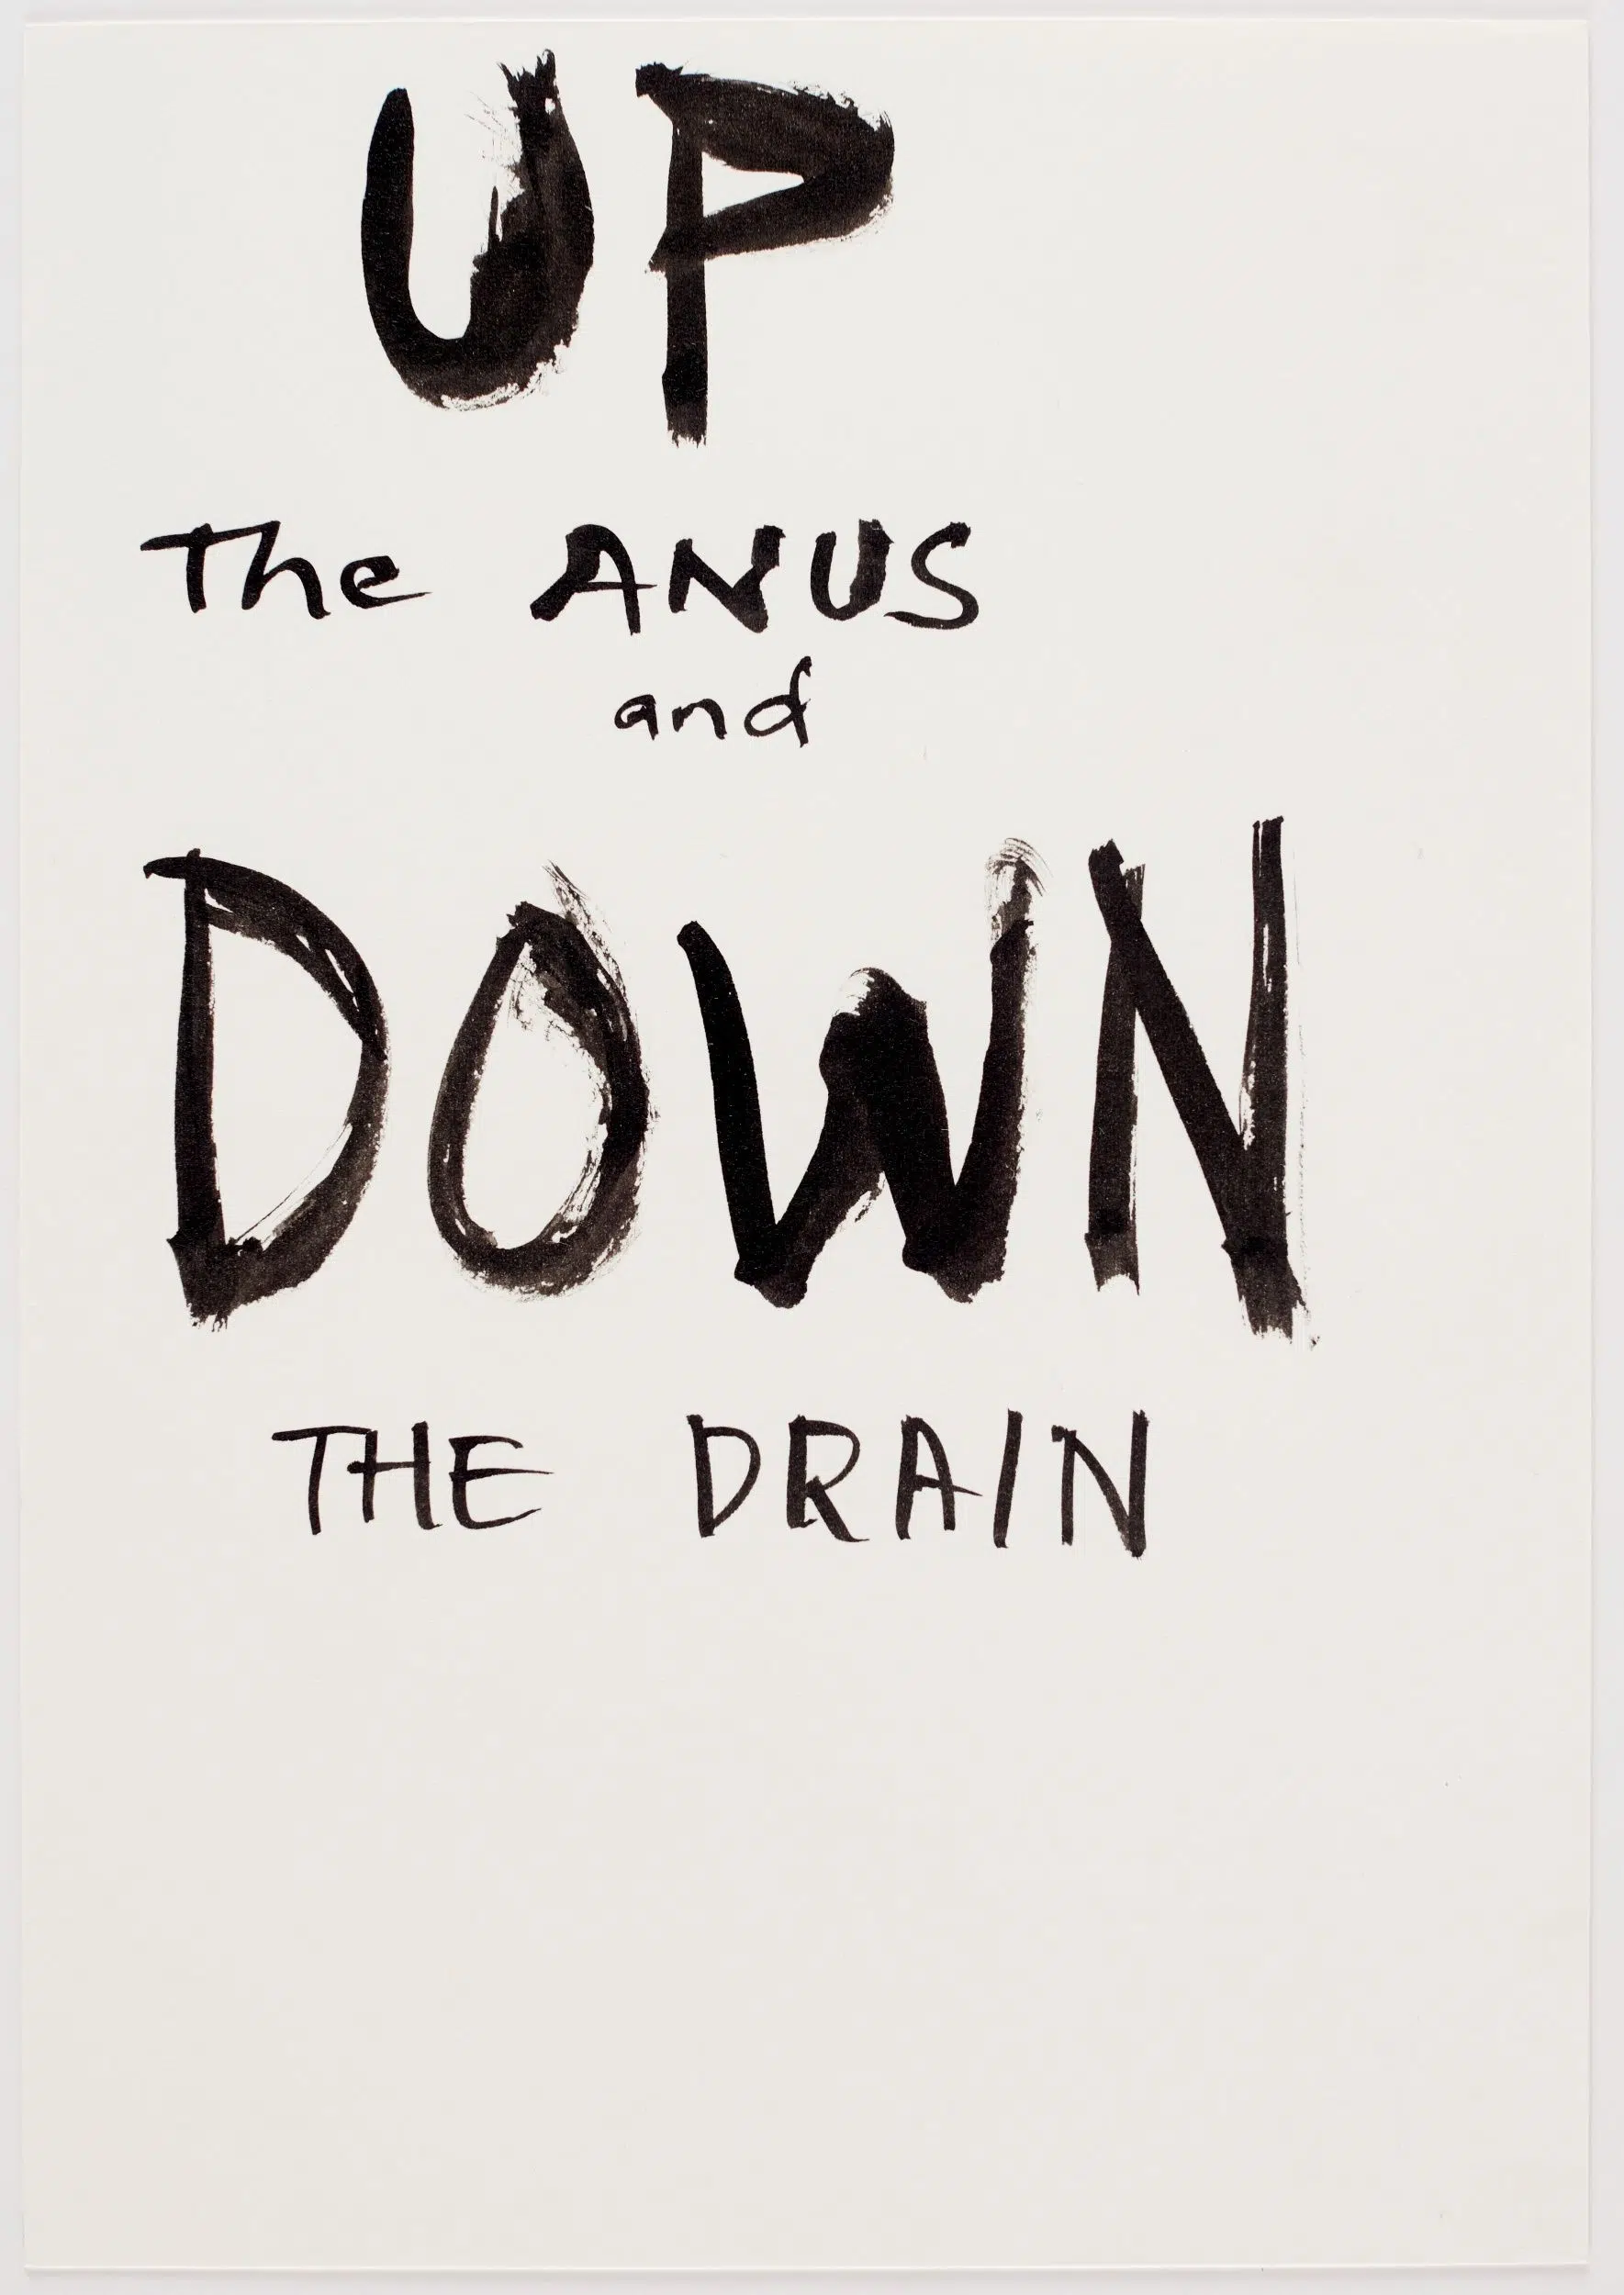 UP
The ANUS
and
DOWN
THE DRAIN